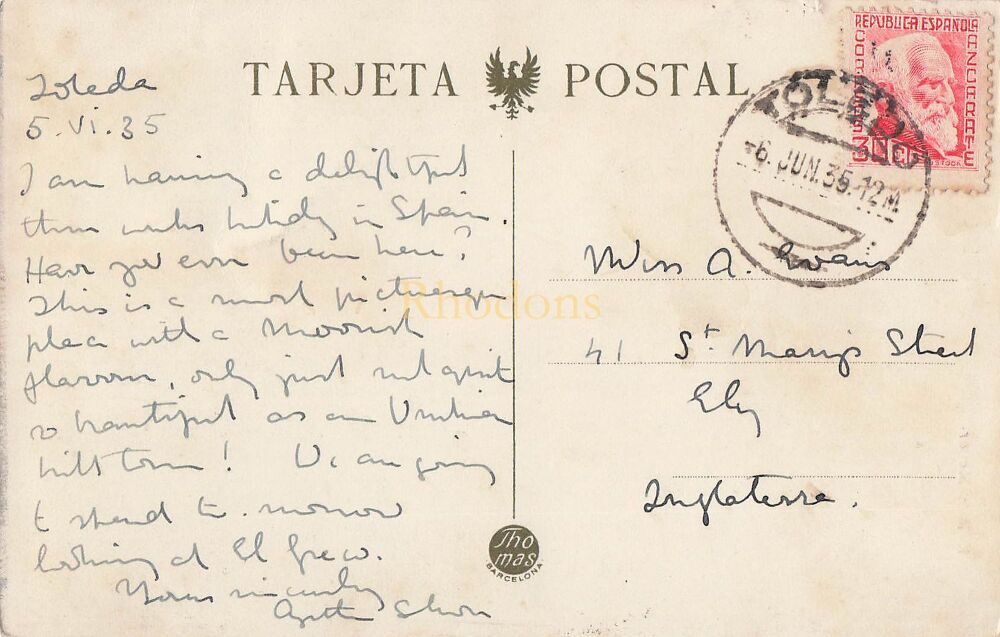 TARJETA POSTAL
REPUBLICA ESPAÑOLA
CORREOS
AZCARATE
30 CTS
TOLEDO
6 JUN.35.12M
Toleda
5.VI.35
I am having a delightful
three weeks holiday in Spain.
Have you ever been here?
This is a most picturesque
place with a Moorish
flavour, only just not quite
so beautiful as an Umbrian
hill town! We are going
to spend to-morrow
looking at El Greco.
Yours sincerely
Miss A. Evans
41 St. Mary's Street
Ely
Inglaterra.
Rhodons
Thomas
BARCELONA